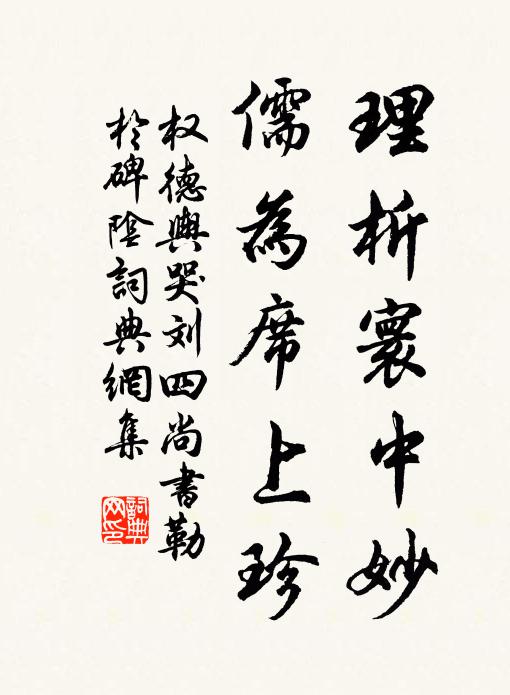 理析寰中妙
儒為席上珍
权德輿哭刘四尚書勒
於碑陰詞典網集
詞典網印